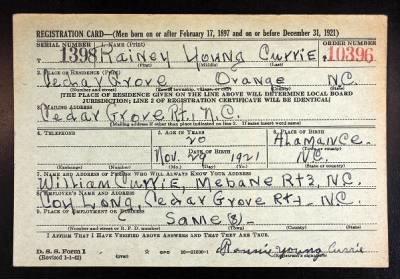 REGISTRATION CARD—(Men born on or after February 17, 1897 and on or before December 31, 1921)
SERIAL NUMBER 1. NAME (Print) ORDER NUMBER
T 1398 Rainey Young Currie 10396
(First) (Middle) (Last)
2. PLACE OF RESIDENCE (Print)
Cedar Grove Orange N.C.
(Number and street) (Town, township, village, or city) (County) (State)
[THE PLACE OF RESIDENCE GIVEN ON THE LINE ABOVE WILL DETERMINE LOCAL BOARD
JURISDICTION; LINE 2 OF REGISTRATION CERTIFICATE WILL BE IDENTICAL]
3. MAILING ADDRESS
Cedar Grove Rt. 1, N.C.
[Mailing address if other than place indicated on line 2. If same insert word same]
4. TELEPHONE 5. AGE IN YEARS 6. PLACE OF BIRTH
20 Alamance
DATE OF BIRTH (Town or county)
Nov. 29 1921 N.C.
(Exchange) (Number) (Mo.) (Day) (Yr.) (State or country)
7. NAME AND ADDRESS OF PERSON WHO WILL ALWAYS KNOW YOUR ADDRESS
William Currie, Mebane Rt 3, N.C.
8. EMPLOYER'S NAME AND ADDRESS
Long, Cedar Grove Rt 1, N.C.
9. PLACE OF EMPLOYMENT OR BUSINESS
Same (8)
(Number and street or R. F. D. number) (Town) (County) (State)
I AFFIRM THAT I HAVE VERIFIED ABOVE ANSWERS AND THAT THEY ARE TRUE.
D. S. S. Form 1
(Revised 1-1-42) (over) Young Currie
(Registrant's signature)